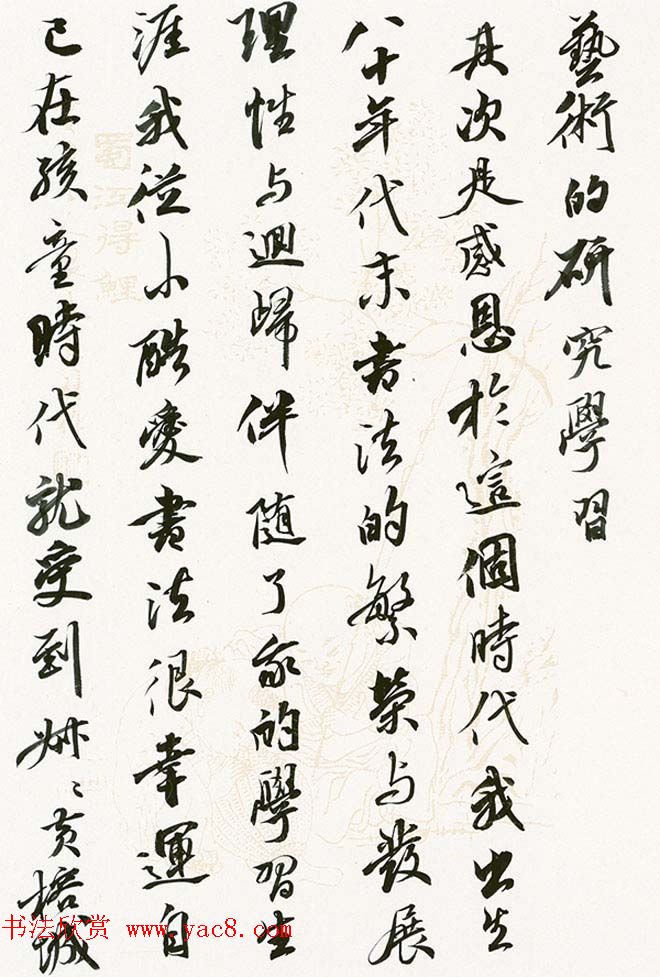 藝術的研究學習
其次是感恩於這個時代我出生
八十年代末書法的繁榮与發展
理性与迴歸伴随了我的學習生
涯我從小酷愛書法很幸運自
已在孩童時代就受到叔〻黄城
书法欣赏 www.yac8.com